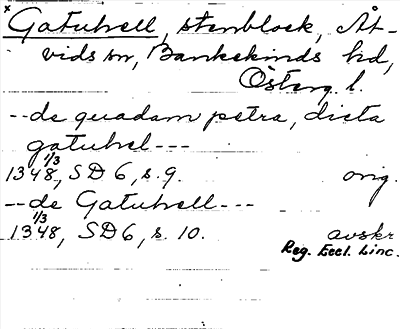 x Gatuhell, stenblock, Åt-
vids sn, Bankekinds hd,
Österg. l.
--de quadam petra, dicta
gatuhel---
1/3
1348, SD 6, s. 9. orig.
--de Gatuhell---
1/3
1348, SD6, s. 10. avskr
Reg. Eccl. Linc.